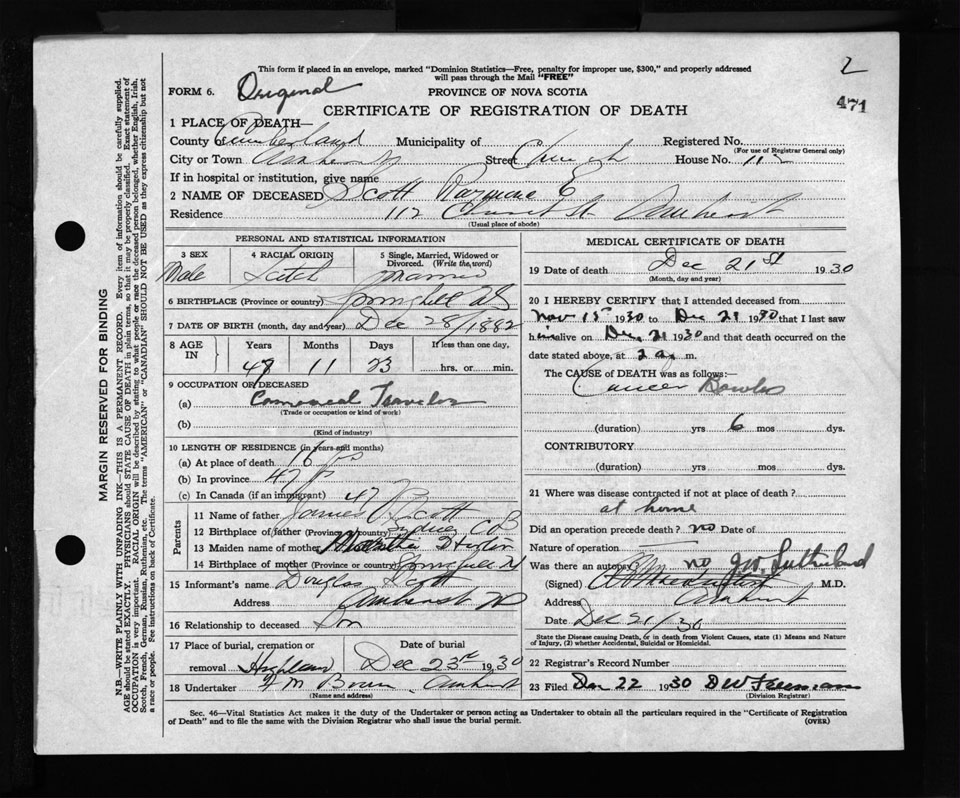 2
This form if placed in an envelope, marked "Dominion Statistics—Free, penalty for improper use, $300," and properly addressed
will pass through the Mail "FREE"
FORM 6. Original PROVINCE OF NOVA SCOTIA
471
CERTIFICATE OF REGISTRATION OF DEATH
1 PLACE OF DEATH—
County of Cumberland Municipality of Registered No.
(For use of Registrar General only)
City or Town Amherst Street Church House No. 112
If in hospital or institution, give name
2 NAME OF DECEASED Scott E
Residence 112 Church St. Amherst
(Usual place of abode)
PERSONAL AND STATISTICAL INFORMATION
3 SEX 4 RACIAL ORIGIN 5 Single, Married, Widowed or Divorced. (Write the word)
Male Scotch Married
6 BIRTHPLACE (Province or country) Springhill NS
7 DATE OF BIRTH (month, day and year) Dec 28/1882
8 AGE IN Years Months Days If less than one day,
47 11 23 hrs. or min.
9 OCCUPATION OF DECEASED
(a) Commercial Traveler
(Trade or occupation or kind of work)
(b)
(Kind of industry)
10 LENGTH OF RESIDENCE (in years and months)
(a) At place of death 16 yrs
(b) In province 47 yrs
(c) In Canada (if an immigrant) 47
Parents
11 Name of father James Scott
12 Birthplace of father (Province or country) C B
13 Maiden name of mother
14 Birthplace of mother (Province or country) Springhill NS
15 Informant's name Douglas Scott
Address Amherst NS
16 Relationship to deceased Son
17 Place of burial, cremation or removal Highland
Date of burial Dec 23rd 1930
18 Undertaker Amherst
(Name and address)
MEDICAL CERTIFICATE OF DEATH
19 Date of death Dec 21st 1930
(Month, day and year)
20 I HEREBY CERTIFY that I attended deceased from
Nov 15 1930 to Dec 21 1930 that I last saw
him alive on Dec 21 1930 and that death occurred on the
date stated above, at 2 a. m.
The CAUSE OF DEATH was as follows:—
Cancer Bowels
(duration) yrs 6 mos dys.
CONTRIBUTORY
(duration) yrs. mos. dys.
21 Where was disease contracted if not at place of death?
at home
Did an operation precede death? no Date of
Nature of operation
Was there an autopsy? no J.W. Sutherland
(Signed) M.D.
Address Amherst
Date Dec 21/30
State the Disease causing Death, or in death from Violent Causes, state (1) Means and Nature
of Injury, (2) whether Accidental, Suicidal or Homicidal.
22 Registrar's Record Number
23 Filed Dec 22 1930
(Division Registrar)
Sec. 46—Vital Statistics Act makes it the duty of the Undertaker or person acting as Undertaker to obtain all the particulars required in the "Certificate of Registration
of Death" and to file the same with the Division Registrar who shall issue the burial permit. (OVER)
MARGIN RESERVED FOR BINDING
N.B.—WRITE PLAINLY WITH UNFADING INK—THIS IS A PERMANENT RECORD. Every item of information should be carefully supplied.
AGE should be stated EXACTLY. PHYSICIANS should STATE CAUSE OF DEATH in plain terms, so that it may be properly classified. Exact statement of
OCCUPATION is very important. RACIAL ORIGIN will be described by stating to what people or race the deceased person belonged, whether English, Irish,
Scotch, French, German, Russian, Ruthenian, etc. The terms "AMERICAN" or "CANADIAN" SHOULD NOT BE USED as they express citizenship but not
a race or people. See instructions on back of Certificate.